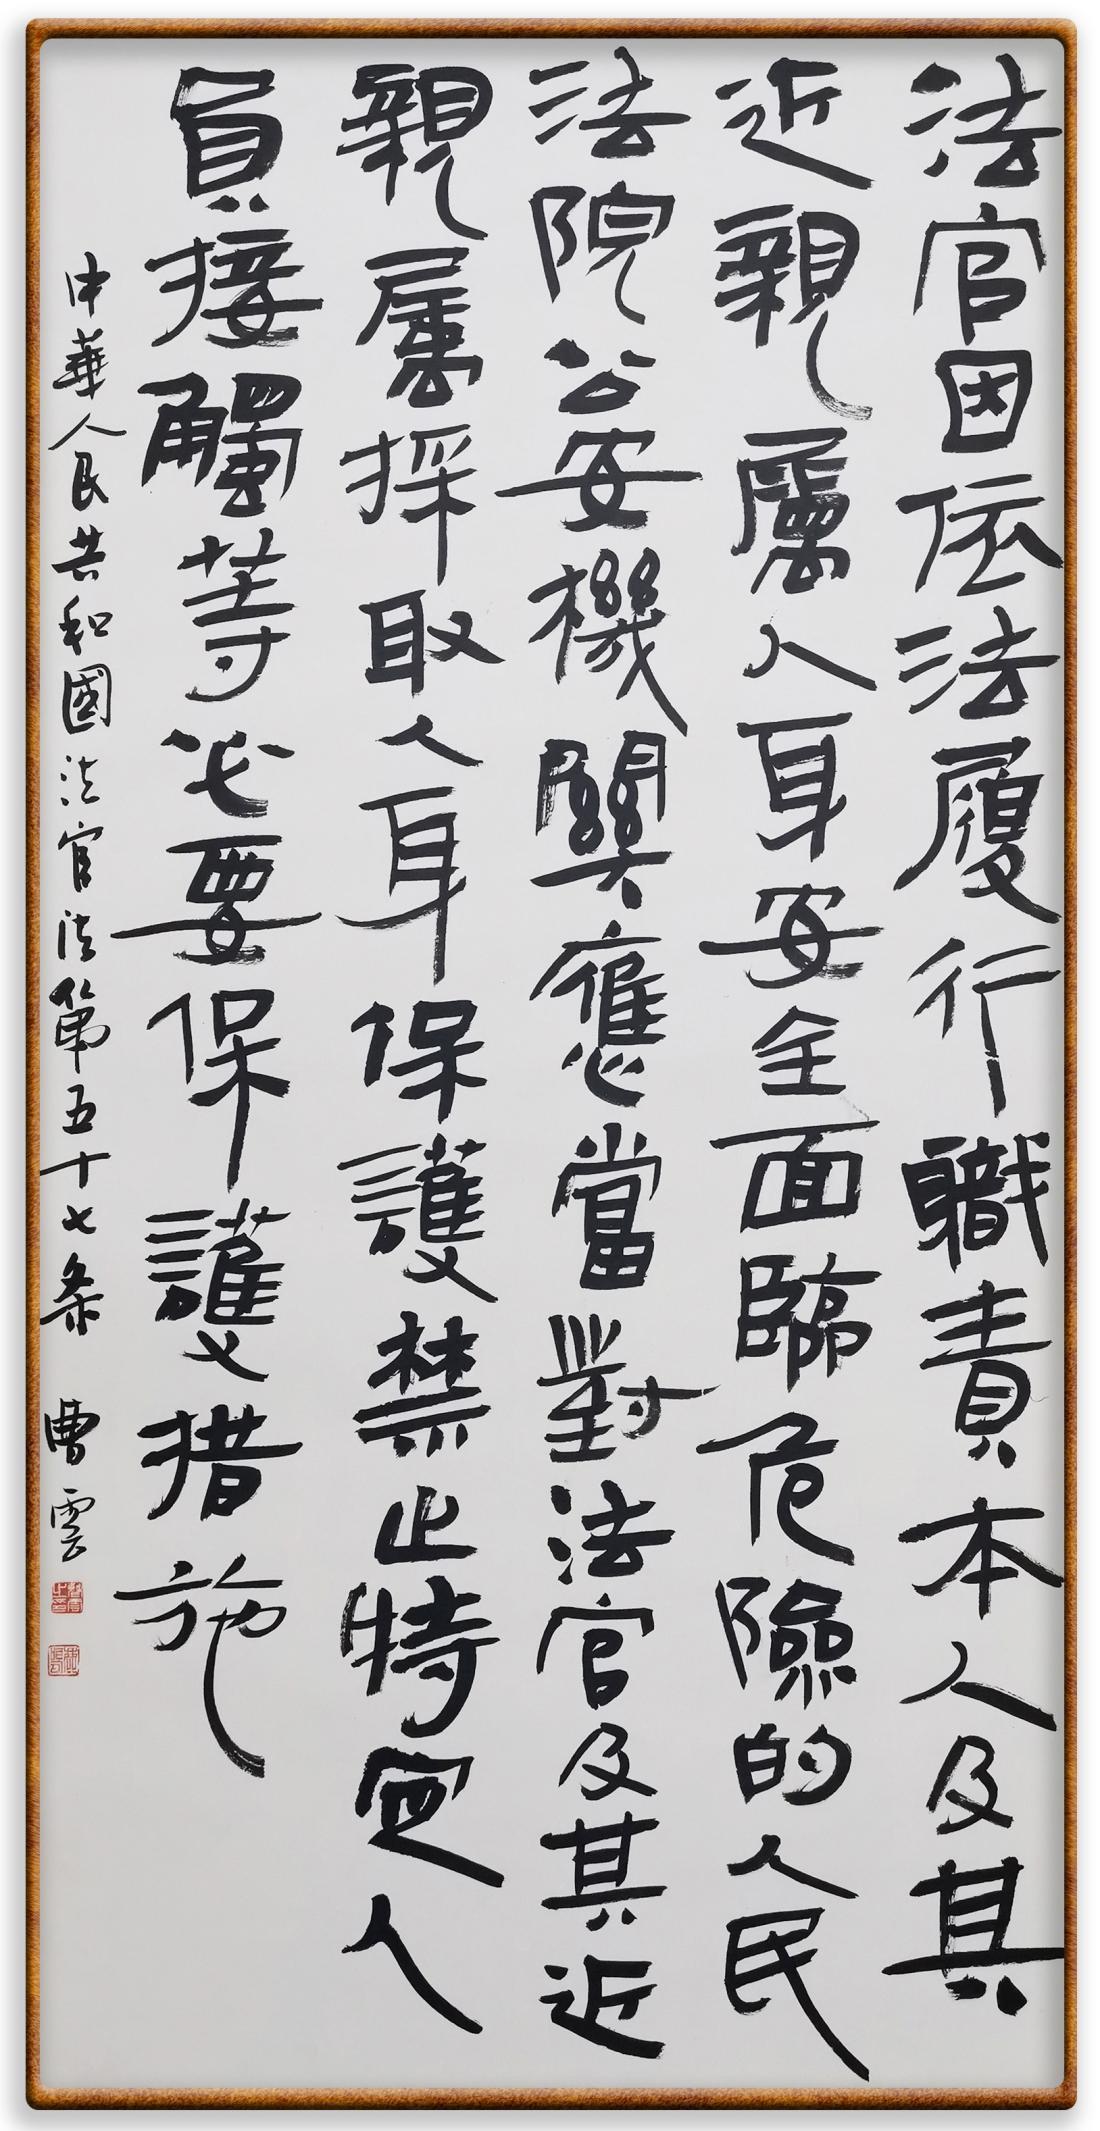 法官因依法履行職責本人及其
近親屬人身安全面臨危險的人民
法院公安機關應當對法官及其近
親屬採取人身保護禁止特定人
員接觸等必要保護措施
中華人民共和國法官法第五十七条 曹雲